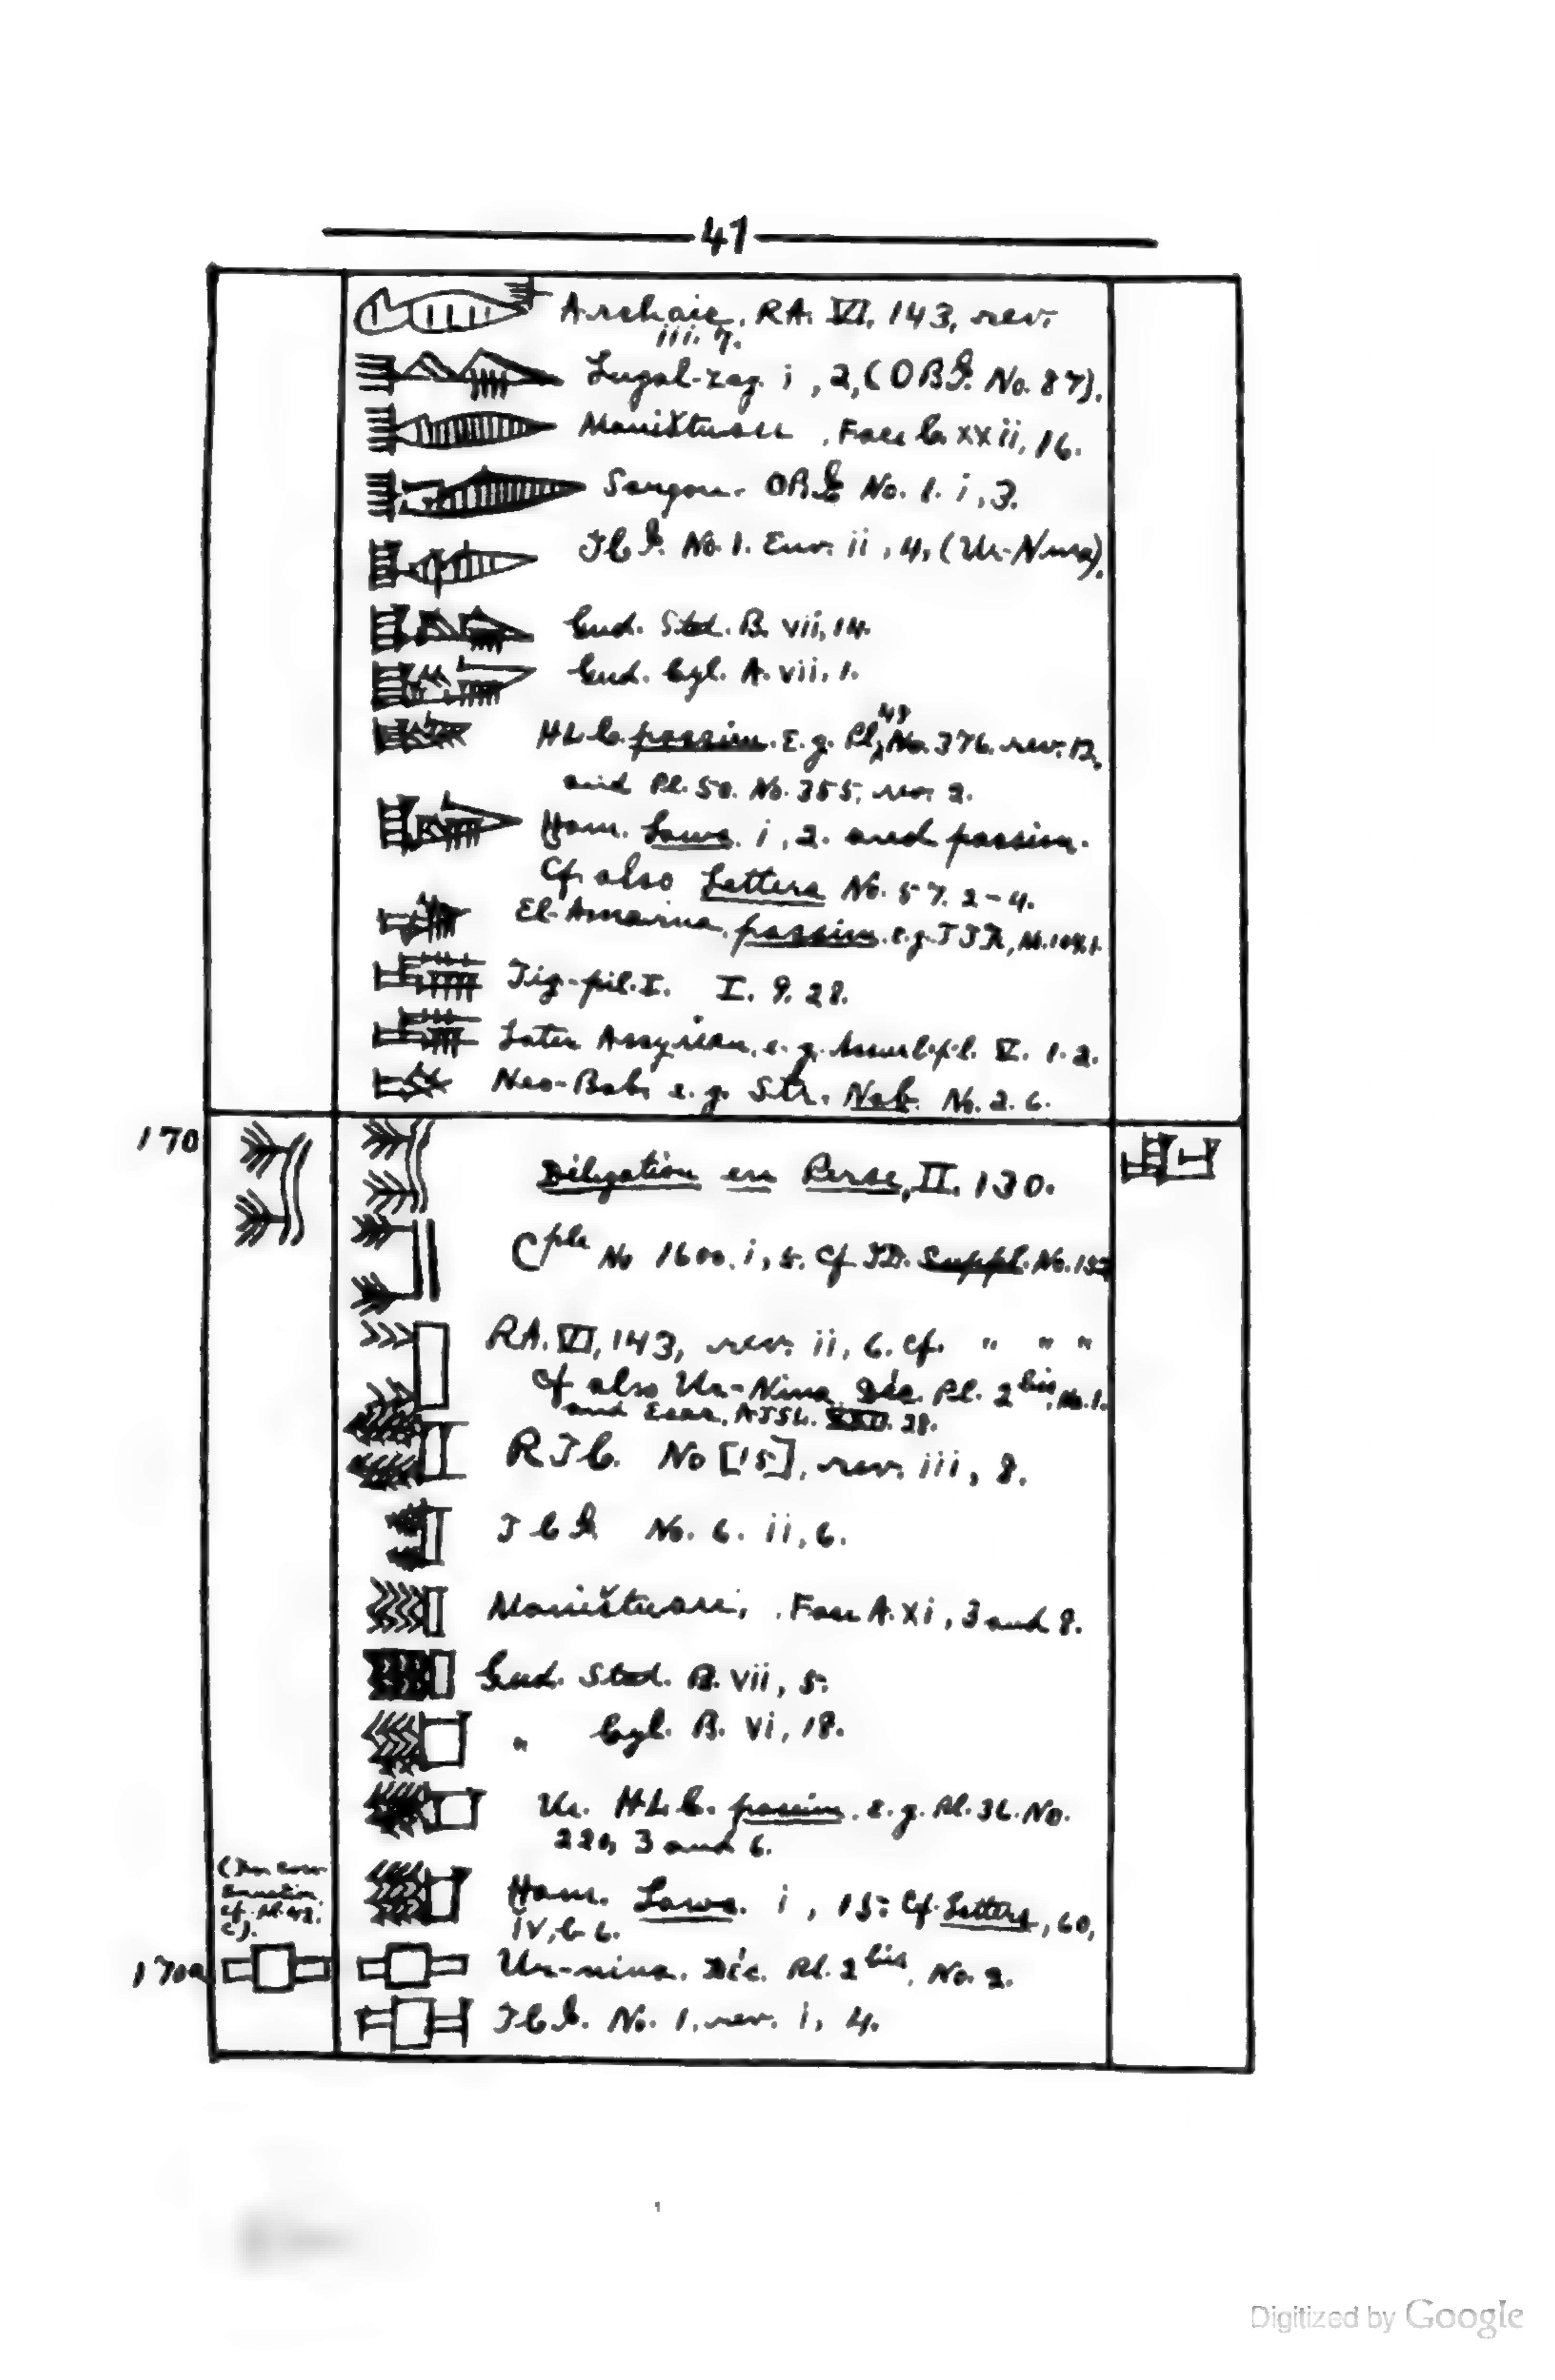 41
Archaic, RA. VI, 143, rev.
iii. 7.
Lugal-zag. i, 2, (OBI. No. 87).
Maništusu, Face C. xxii, 16.
Sargon. OBI No. 1. i, 3.
No. 1. Env. ii, 4, (Ur-Nina).
Gud. Stat. B. vii, 14.
Gud. Cyl. A. vii. 1.
HLC. passim. E.g. Pl. 49 No. 376. rev. 12,
and Pl. 50. No. 355, rev. 2.
Ham. Laws. i, 2. and passim.
Cf. also Letters No. 57. 2-4.
El-Amarna, passim. e.g.
Tig-pil. I. I. 9. 28.
Later Assyrian, e.g. Assurb.pl. V. 1. 2.
Neo-Bab. e.g. Str. Nab. No. 2. 6.
170
Délégation en Perse, II. 130.
Cple No 1600. i, 5. Cf TD. Suppl. No.
RA. VI, 143, rev. ii, 6. cf. " " "
Cf also Ur-Nina, Déc. Pl. 2 bis, No. 1.
and AJSL. 28.
RTC. No [15], rev. iii, 8.
No. 6. ii, 6.
Maništusu, Face A. xi, 3 and 8.
Gud. Stat. B. vii, 5.
" Cyl. B. vi, 18.
Ur. HLC. passim. e.g. Pl. 36. No.
220, 3 and 6.
Ham. Laws. i, 15. Cf. Letters, 60,
iv, 6.
170a
Ur-nina. Déc. Pl. 2 bis, No. 2.
No. 1. rev. i, 4.
Digitized by Google